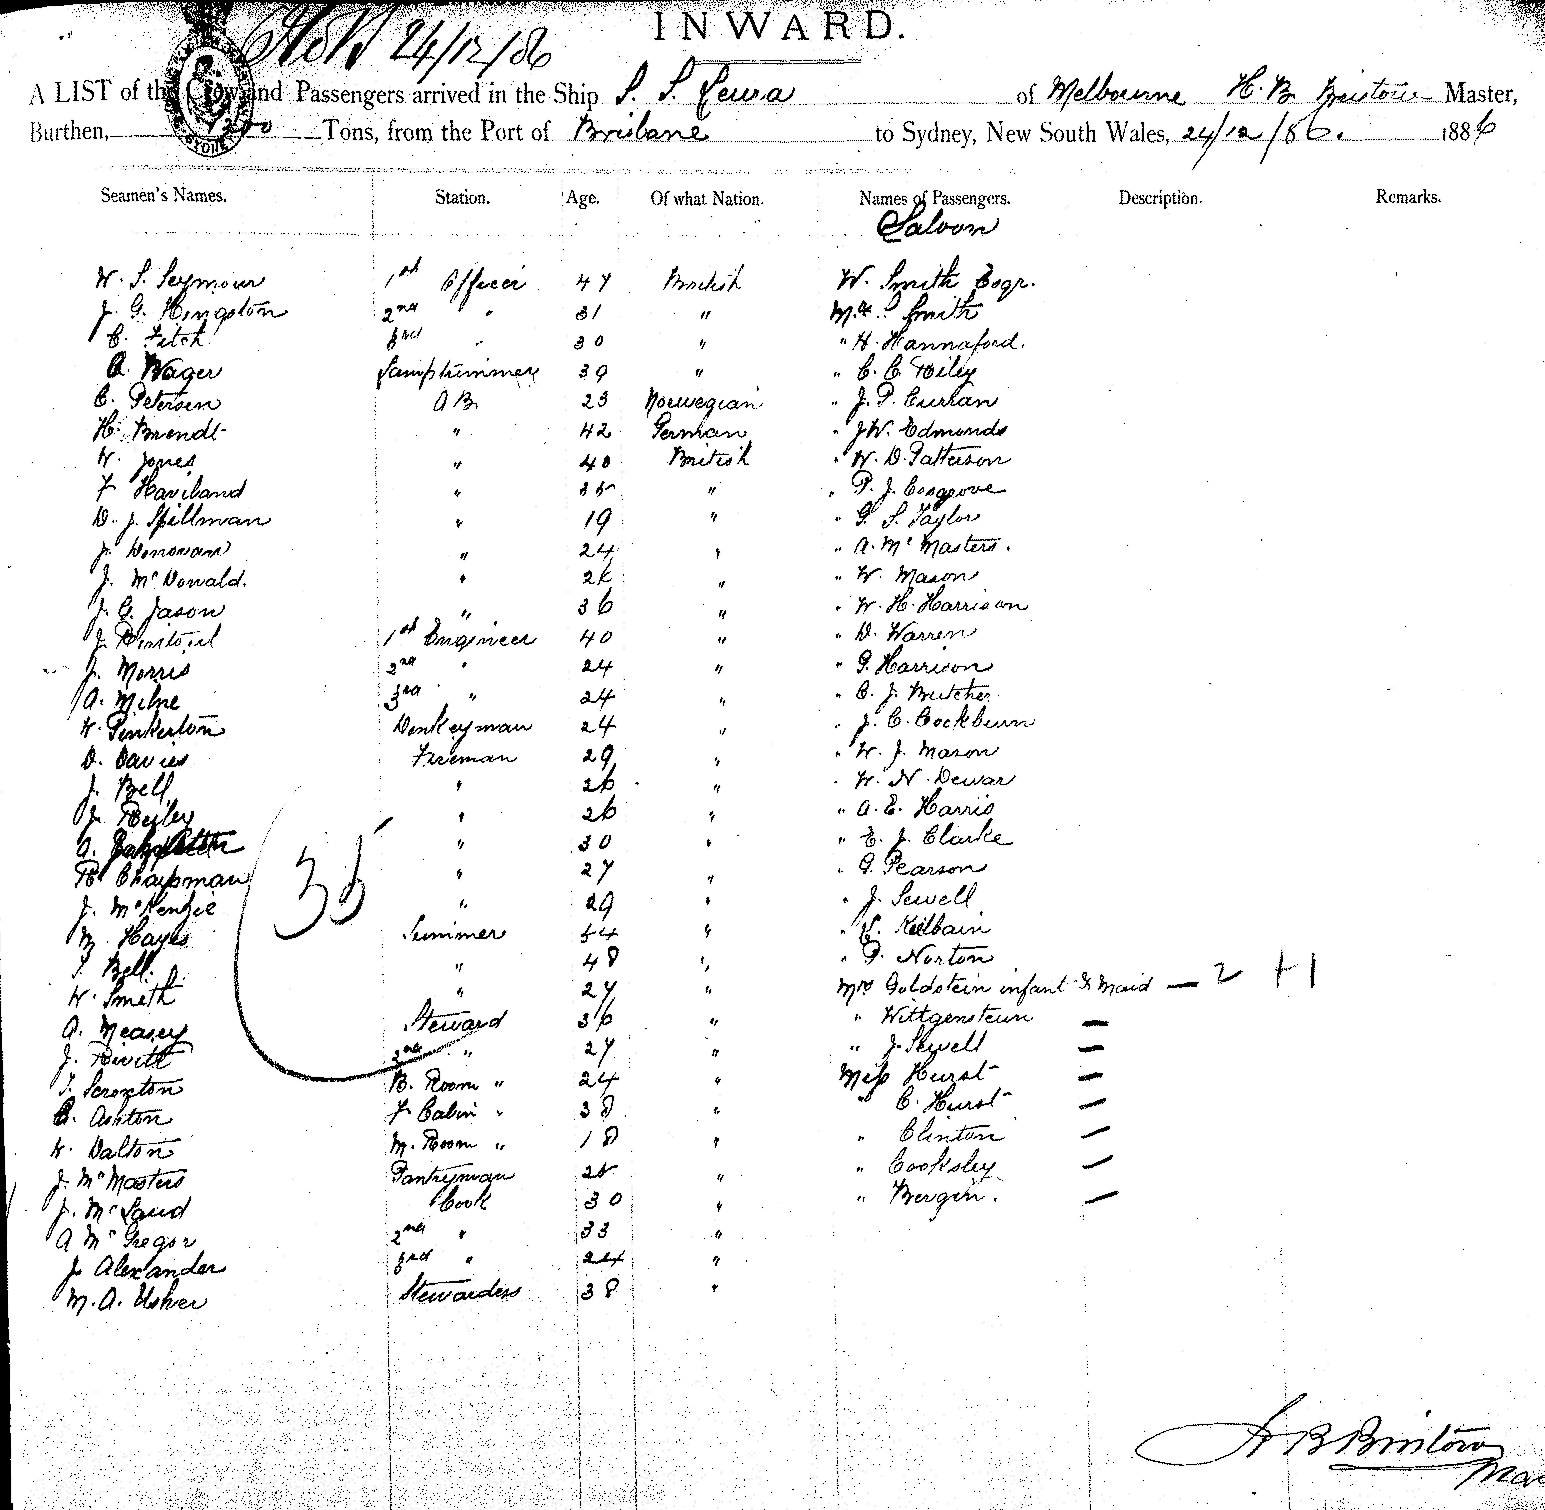 INWARD.
24/12/86
A LIST of the Crew and Passengers arrived in the Ship S. S. Leura of Melbourne H. B. Bristow Master,
Burthen, Tons, from the Port of Brisbane to Sydney, New South Wales, 24/12/86. 1886
Seamen's Names. Station. Age. Of what Nation. Names of Passengers. Description. Remarks.
Saloon
W. S. Seymour 1st Officer 47 British W. Smith Esqr.
J. G. Kingston 2nd " 31 " Mr S Smith
C. Fitch 3rd " 30 " " H. Hannaford.
A. Wager Lamptrimmer 39 " " C. C. Riley
C. Petersen AB 23 Norwegian " J. P. Curran
H. Brendt " 42 German " J W. Edmonds
W. Jones " 40 British " W. D. Patterson
F Haviland " 35 " " P. J. Cosgrove
D. J. Spillman " 19 " " G. S. Taylor
J. Donovan " 24 " " A. Mc Masters.
J. Mc Donald. " " " W. Mason
J. G. Jason " 36 " " W. H. Harrison
J. 1st Engineer 40 " " D. Warren
J. Morris 2nd " 24 " " G. Harrison
A. Milne 3rd " 24 " " C. J. Butcher
W. Pinkerton Donkeyman 24 " " J. C. Cockburn
D. Davies Fireman 29 " " W. J. Mason
J. Bell " 26 " " W. N. Dewar
J. Reiley " 26 " " A. E. Harris
A. " 30 " " E. J. Clarke
R. Chapman " 27 " " G. Pearson
J. McKenzie " 29 " " J. Sewell
M. Hayes Trimmer 54 " " Kilbain
Bell. " 48 " " P. Norton
W. Smith " 27 " Mrs Goldstein infant & Maid — 2 +1
A. Measey Steward 36 " " Wittgenstein —
J. Rivett 2nd " 27 " " J. Sewell —
T. Scroxton B. Room " 24 " Miss Hurst —
Ashton F Cabin " 38 " " C. Hurst —
W. Dalton M. Room " 18 " " Clinton —
J. Mc Masters Pantryman 25 " " Cooksley —
J. Mc Cook 30 " " Bergin. —
A Mc Gregor 2nd " 33 "
J Alexander 3rd " 24 "
M. A. Usher Stewardess 38 "
35
H B Bristow